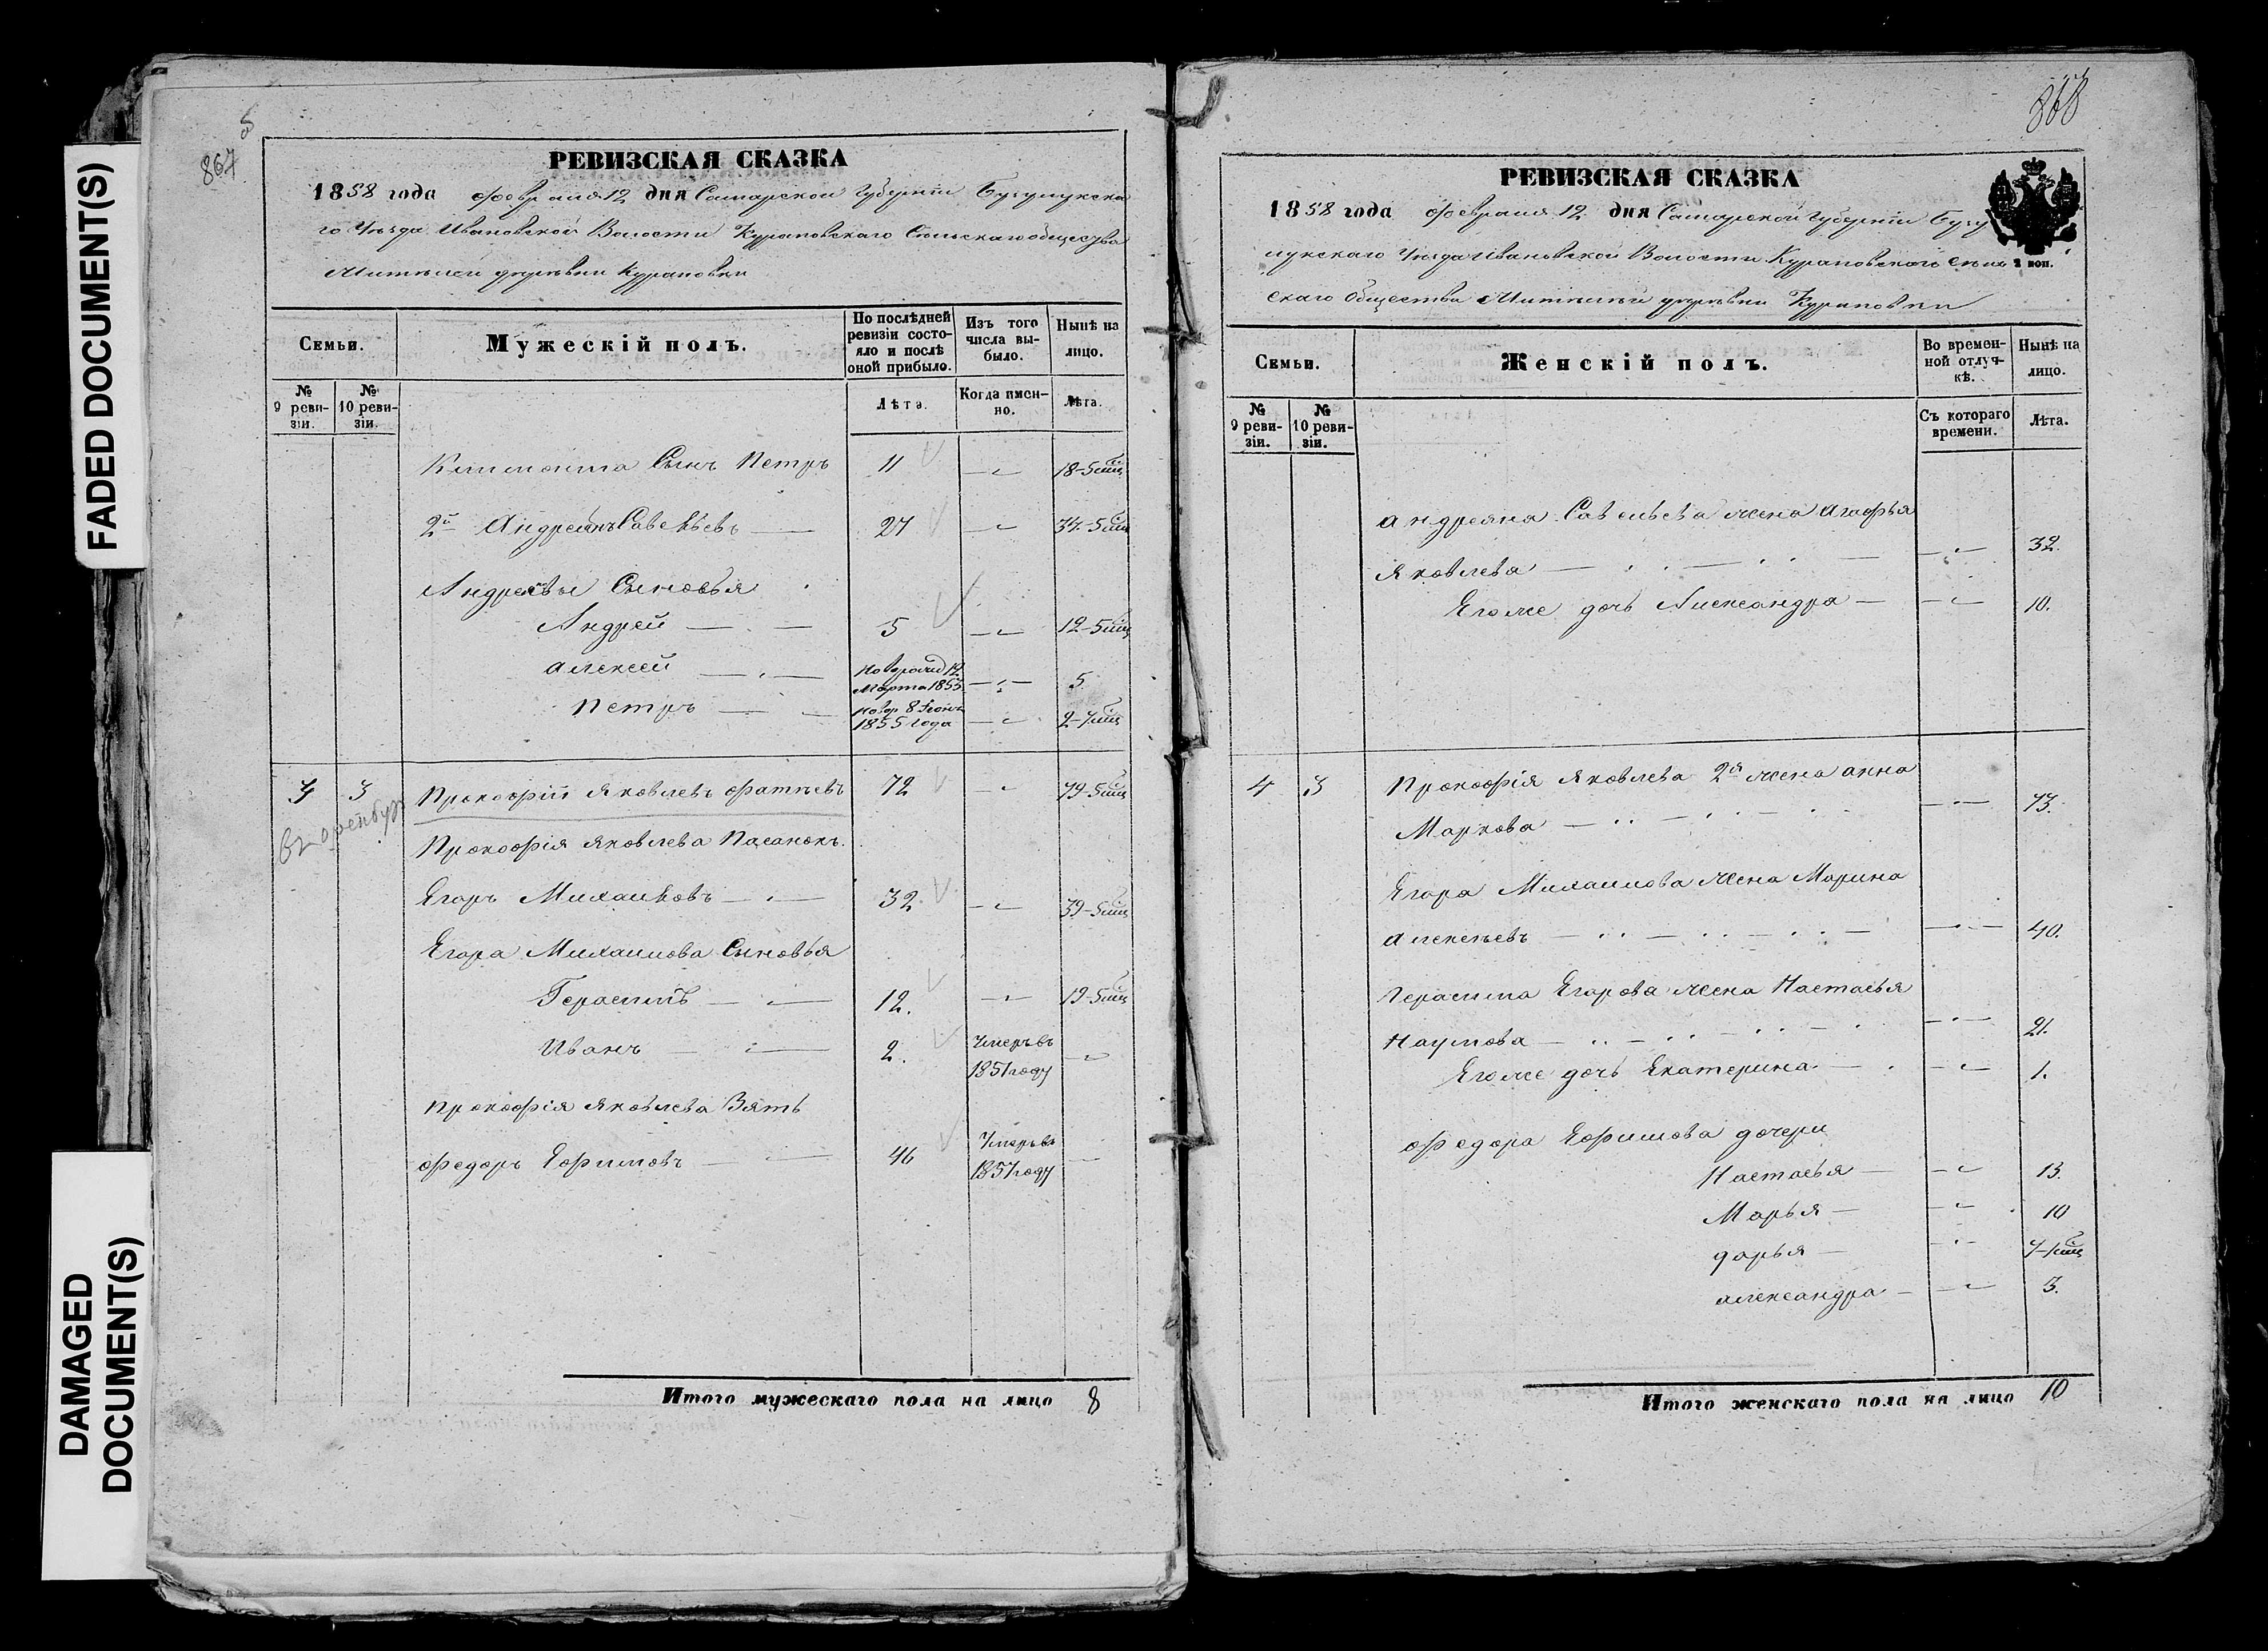 FADED DOCUMENT(S)
DAMAGED
DOCUMENT(S)
5
867
РЕВИЗСКАЯ СКАЗКА
1858 года февраля 12 дня Самарской Губернiи Бузулукска
го Уѣзда Ивановской Волости Курановскаго Сельскаго общества
деревни Курановки
Семьи.
Мужескiй полъ.
По послѣдней ревизiи состояло и послѣ оной прибыло.
Изъ того числа выбыло.
Нынѣ на лицо.
№ 9 ревизiи.
№ 10 ревизiи.
Лѣта.
Когда именно.
Лѣта.
Сынъ Петръ 11 — 18-5
2й Андреянъ Савельевъ — 27 — 34-5
Андреевы Сыновья
Андрей — 5 — 12-5
Алексей — Новорожд 12 Марта 1853 — 5
Петръ — 1855 года — 2-7
4 3 Прокофiй Яковлевъ Фатѣевъ 72 — 79-5
въ оренбург
Прокофiя Яковлева Пасанокъ.
Егоръ Михаиловъ — 32. — 39-5
Егора Михаилова Сыновья
Герасимъ — 12. — 19-5
Иванъ — 2. Умеръ въ 1851 году —
Прокофiя Яковлева Зять
Федоръ Ефимовъ — 46 Умеръ въ 1857 году —
Итого мужескаго пола на лицо 8
868
РЕВИЗСКАЯ СКАЗКА
1858 года февраля 12 дня Самарской Губернiи Бузу
лукскаго Уѣзда Ивановской Волости Курановскаго Сель 2 коп.
скаго Общества деревни Курановки
Семьи.
Женскiй полъ.
Во временной отлучкѣ.
Нынѣ на лицо.
№ 9 ревизiи.
№ 10 ревизiи.
Съ котораго времени.
Лѣта.
Андреяна Савельева жена Агафья
Яковлева — 32.
Егоже дочь Александра — 10.
4 3 Прокофiя Яковлева 2я жена Анна
Маркова — 73.
Егора Михаилова жена Марина
Алексѣевъ — 40.
Герасима Егорова жена Настасья
Наумова — 21.
Егоже дочь Екатерина — 1.
Федора Ефимова дочери
Настасья — 13.
Марья — 10
Дарья — 7-1
Александра — 3.
Итого женскаго пола на лицо 10